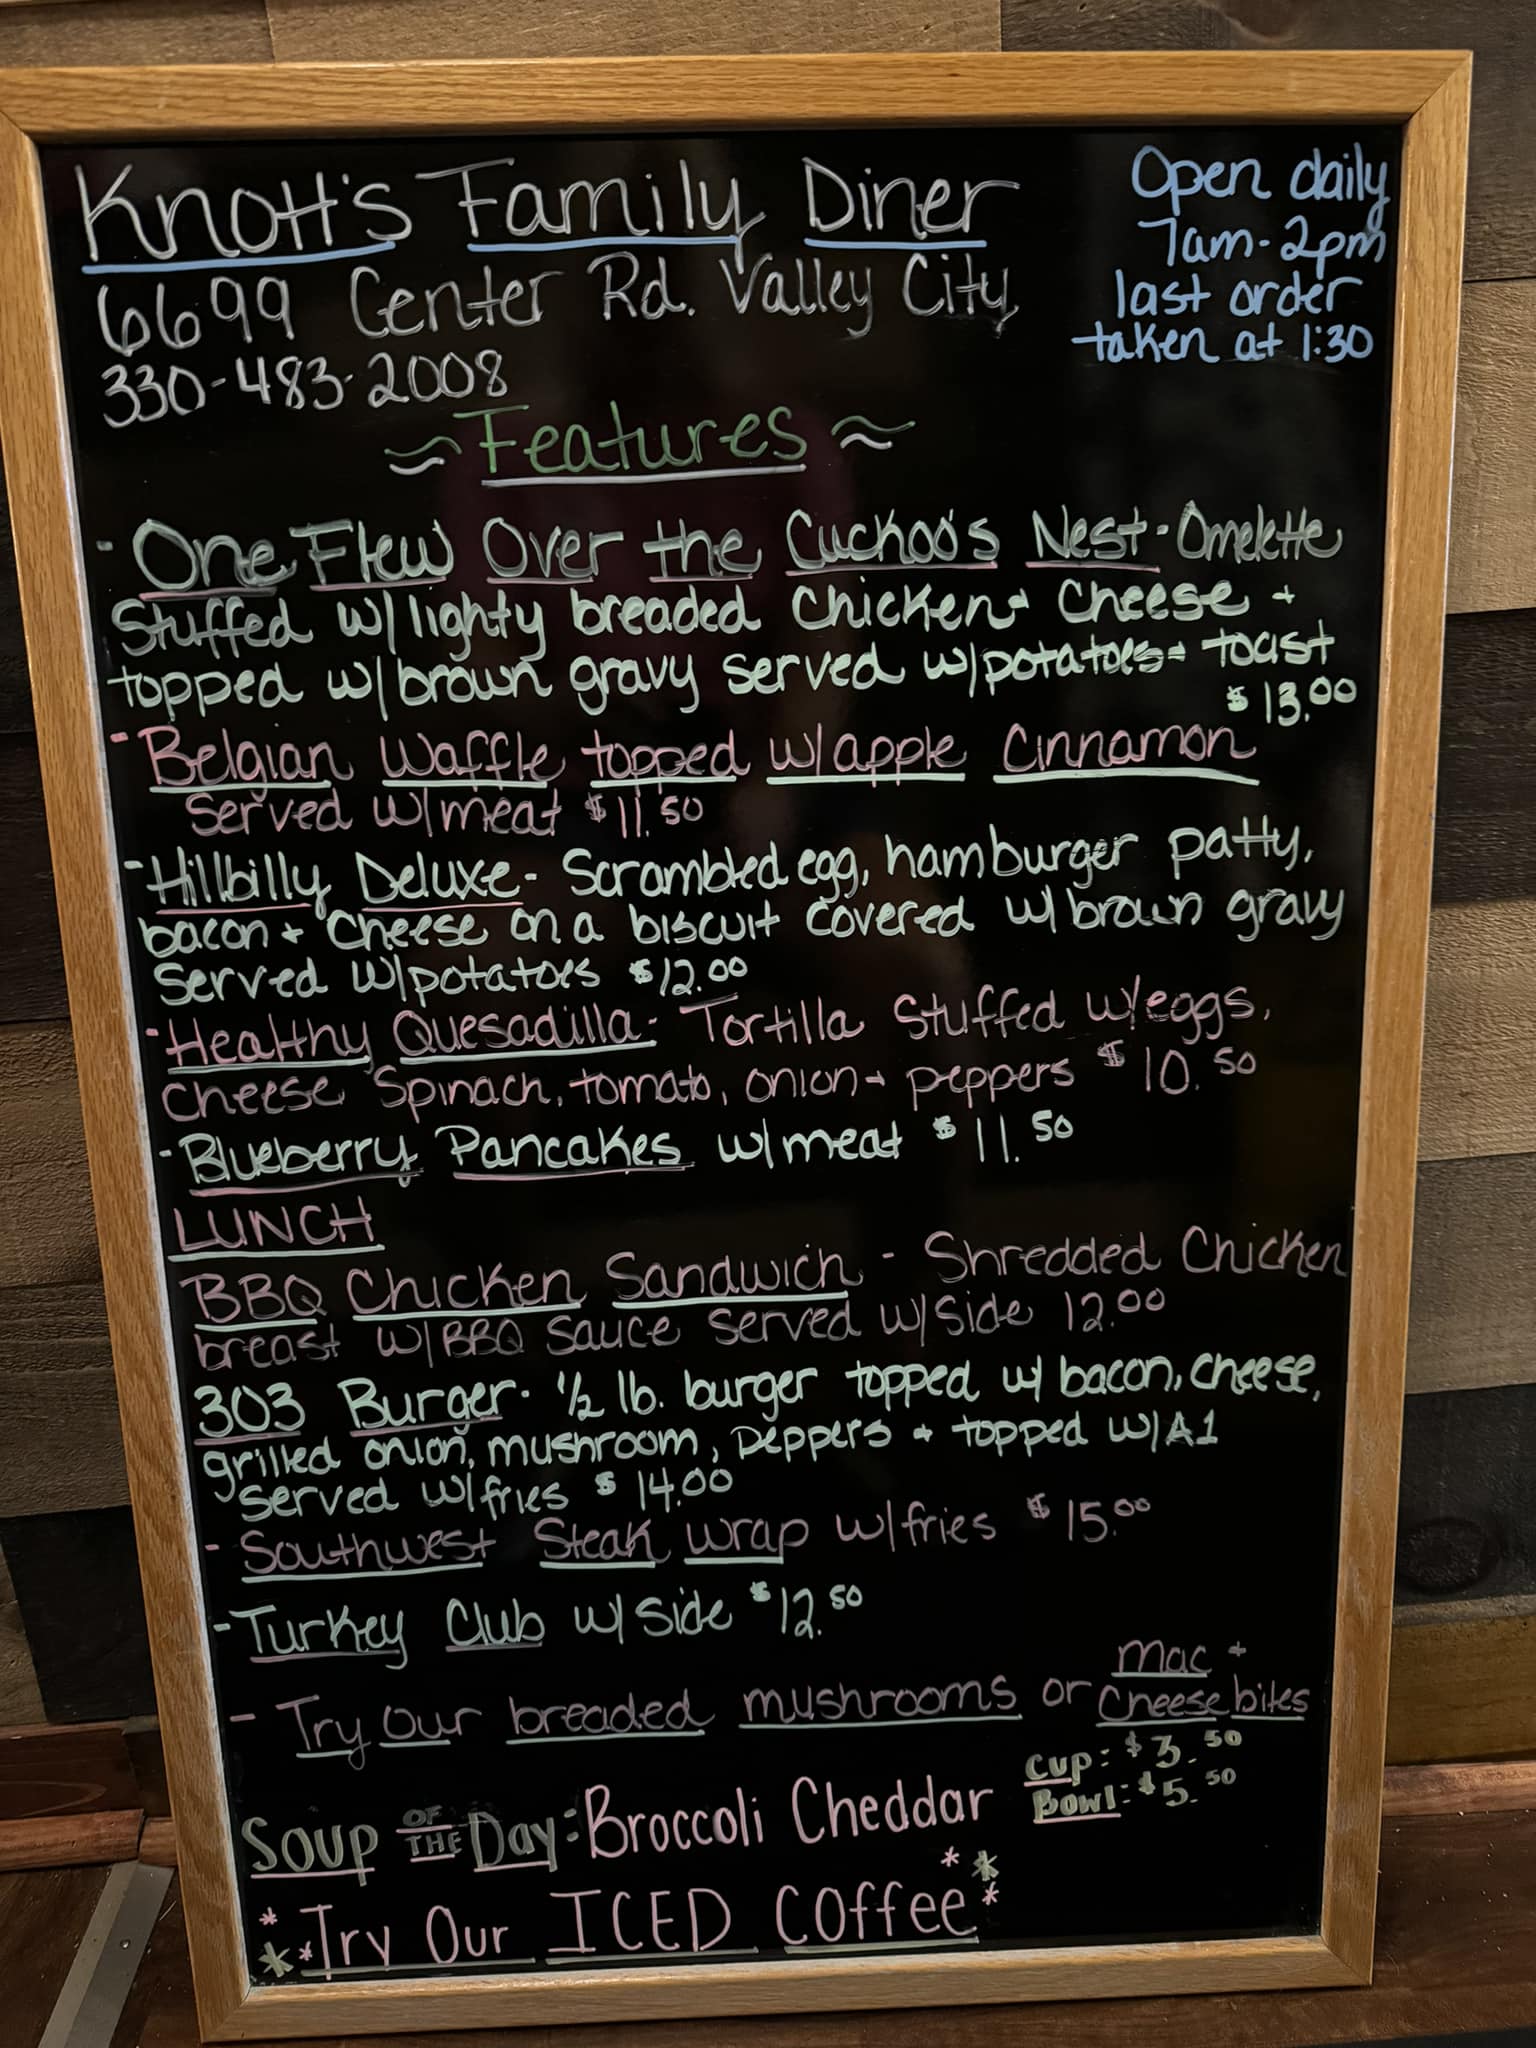 Knott's Family Diner
6699 Center Rd. Valley City
330-483-2008
Open daily
7am-2pm
last order
taken at 1:30
~ Features ~
- One Flew Over the Cuckoo's Nest - Omelette
Stuffed w/lighty breaded chicken + cheese +
topped w/brown gravy served w/potatoes + toast
$13.00
- Belgian Waffle topped w/apple cinnamon
Served w/meat $11.50
- Hillbilly Deluxe - Scrambled egg, hamburger patty,
bacon + cheese on a biscuit covered w/brown gravy
Served w/potatoes $12.00
- Healthy Quesadilla - Tortilla stuffed w/eggs,
cheese spinach, tomato, onion + peppers $10.50
- Blueberry Pancakes w/meat $11.50
LUNCH
BBQ Chicken Sandwich - Shredded Chicken
breast w/BBQ sauce served w/side 12.00
303 Burger - 1/2 lb. burger topped w/ bacon, cheese,
grilled onion, mushroom, peppers + topped w/A1
Served w/fries $14.00
- Southwest Steak wrap w/fries $15.00
- Turkey Club w/ side $12.50
- Try our breaded mushrooms or Mac +
Cheese bites
Soup OF THE Day: Broccoli Cheddar
Cup: $3.50
Bowl: $5.50
**Try Our ICED Coffee**